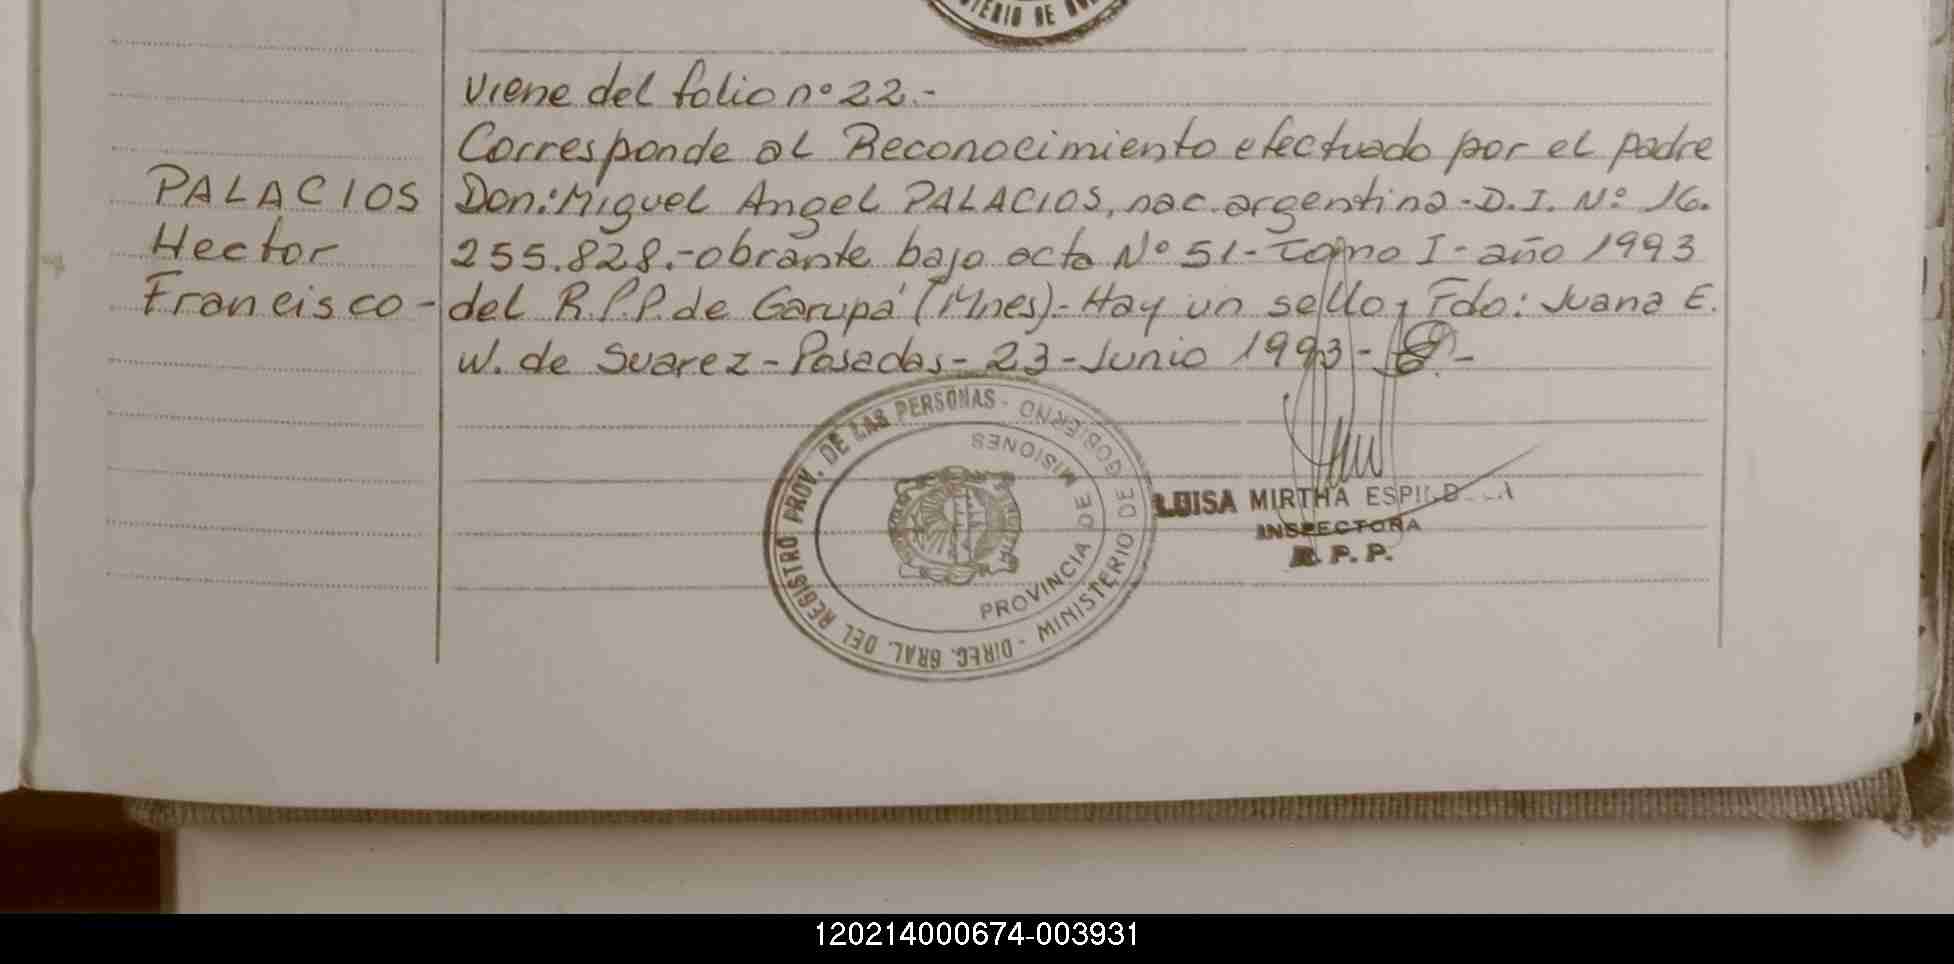 MINISTERIO DE
Viene del folio nº 22.-
Corresponde al Reconocimiento efectuado por el padre
PALACIOS Don: Miguel Angel PALACIOS, nac. argentina - D.I. Nº 16.
Hector 255.828.- obrante bajo acta Nº 51 - Tomo I - año 1993
Francisco - del R.P.P. de Garupá (Mnes) - Hay un sello y Fdo: Juana E.
W. de Suarez - Posadas - 23 - Junio 1993 -
DIREC. GRAL. DEL REGISTRO PROV. DE LAS PERSONAS - MINISTERIO DE GOBIERNO
PROVINCIA DE MISIONES
LUISA MIRTHA
INSPECTORA
R. P. P.
120214000674-003931